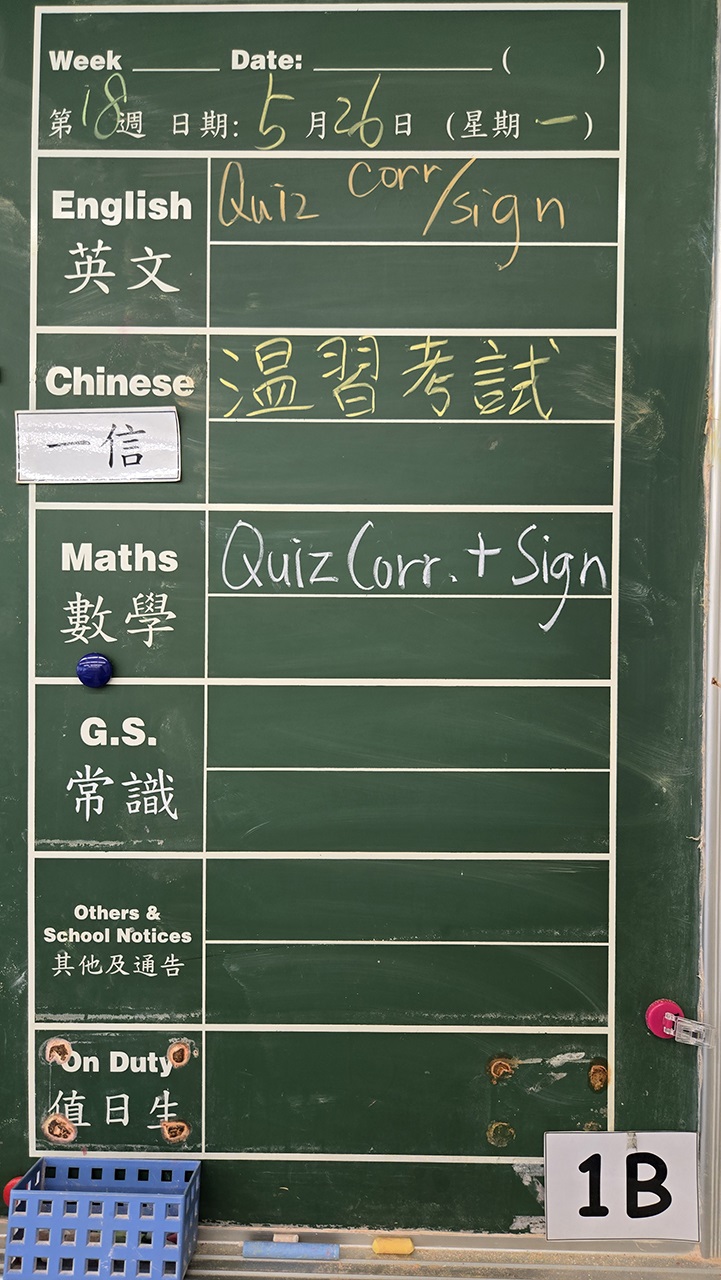 Week ______ Date: ______________ (      )
第18週 日期: 5月26日 (星期一)
English Quiz corr/sign
英文
Chinese 温習考試
一信
Maths Quiz Corr. + Sign
數學
G.S.
常識
Others &
School Notices
其他及通告
On Duty
值日生
1B